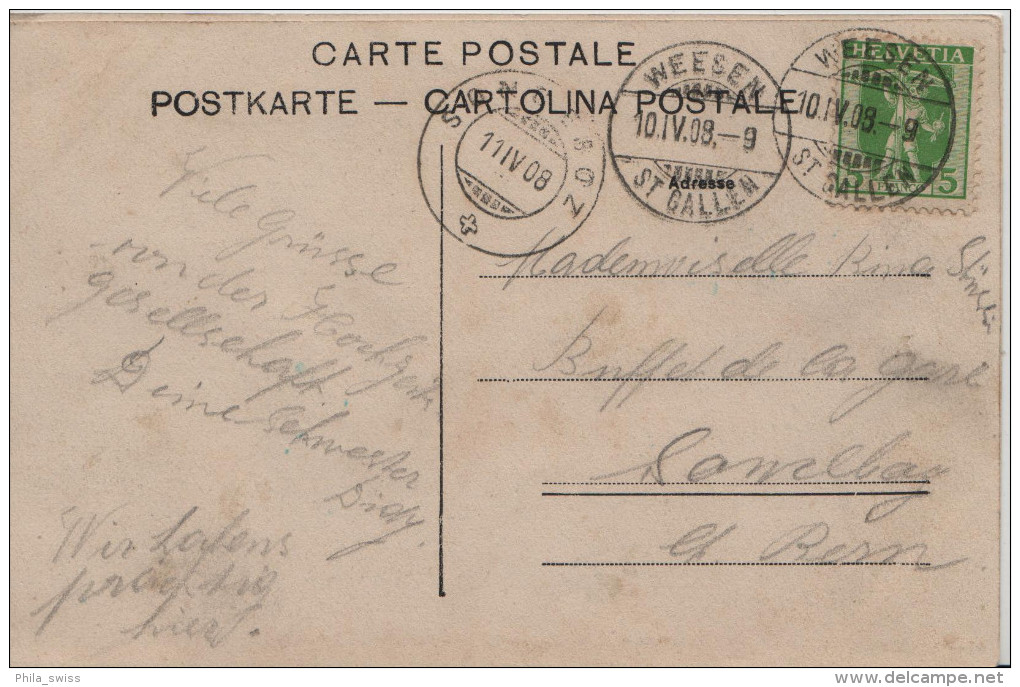 CARTE POSTALE
POSTKARTE — CARTOLINA POSTALE
WEESEN
10.IV.08.–9
ST GALLEN
WEESEN
10.IV.08.–9
ST GALLEN
HELVETIA
5 5
11 IV 08
Adresse
Viele Grüsse
von der Hochzeits
gesellschaft
Deine Schwester
Didy.
Wir habens
prächtig
hier.
Mademoiselle Rina
Buffet de la gare
Ct Bern
Phila_swiss